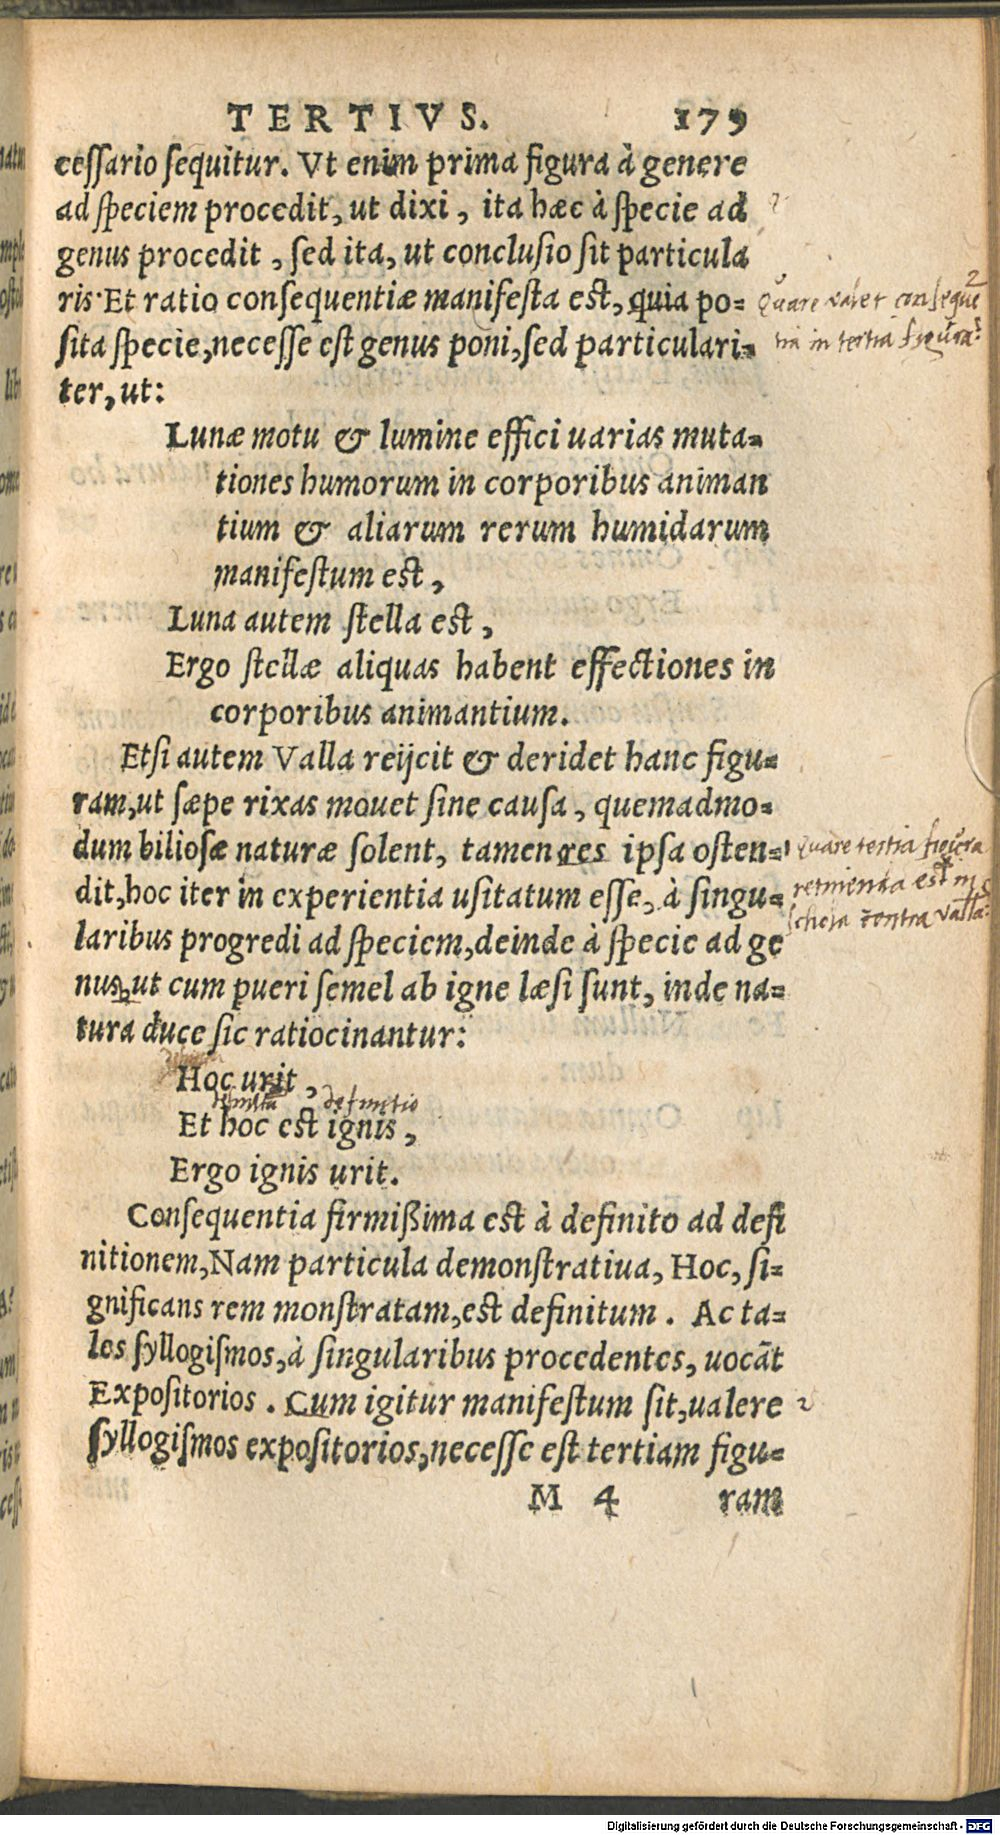 TERTIVS. 179
cessario sequitur. Vt enim prima figura à genere
ad speciem procedit, ut dixi, ita hæc à specie ad
genus procedit, sed ita, ut conclusio sit particula
ris. Et ratio consequentiæ manifesta est, quia po-
sita specie, necesse est genus poni, sed particulari-
ter, ut:
Quare valet conseque
tia in tertia figura?
Lunæ motu & lumine effici uarias muta-
tiones humorum in corporibus animan
tium & aliarum rerum humidarum
manifestum est,
Luna autem stella est,
Ergo stellæ aliquas habent effectiones in
corporibus animantium.
Etsi autem Valla reijcit & deridet hanc figu-
ram, ut sæpe rixas mouet sine causa, quemadmo-
dum biliosæ naturæ solent, tamen res ipsa osten-
dit, hoc iter in experientia usitatum esse, à singu-
laribus progredi ad speciem, deinde à specie ad ge
nus, ut cum pueri semel ab igne læsi sunt, inde na-
tura duce sic ratiocinantur:
Quare tertia figura
retinenda est in
contra Valla
Hoc urit,
definitio
Et hoc est ignis,
Ergo ignis urit.
Consequentia firmißima est à definito ad defi
nitionem, Nam particula demonstratiua, Hoc, si-
gnificans rem monstratam, est definitum. Ac ta-
les syllogismos, à singularibus procedentes, uocãt
Expositorios. Cum igitur manifestum sit, ualere
syllogismos expositorios, necesse est tertiam figu-
M 4 ram
Digitalisierung gefördert durch die Deutsche Forschungsgemeinschaft - DFG